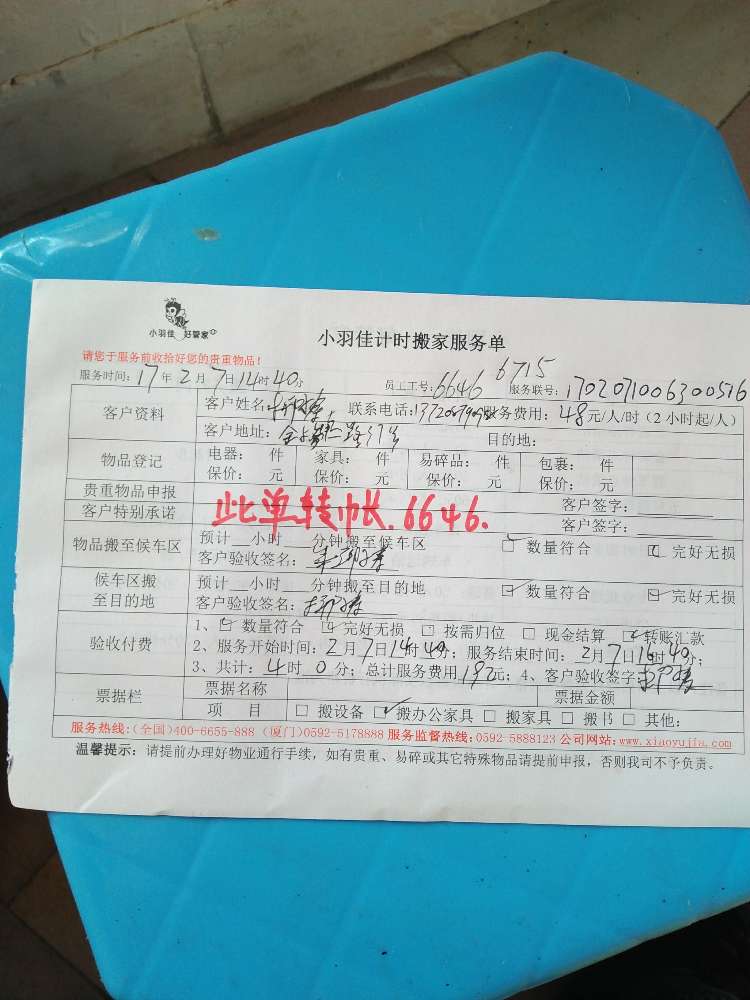 小羽佳 好管家
小羽佳计时搬家服务单
请您于服务前收拾好您的贵重物品!
6715
服务时间:17年2月7日14时40分 员工工号:6646 服务联号:1702071006300516
客户资料 客户姓名: 联系电话: 服务费用:48元/人/时(2小时起/人)
客户地址: 目的地:
物品登记 电器: 件 家具: 件 易碎品: 件 包裹: 件
保价: 元 保价: 元 保价: 元 保价: 元
贵重物品申报 客户签字:
客户特别承诺 客户签字:
此单转帐.6646.
物品搬至候车区 预计 小时 分钟搬至候车区 ☐ 数量符合 ☑ 完好无损
客户验收签名:
候车区搬至目的地 预计 小时 分钟搬至目的地 ☑ 数量符合 ☑ 完好无损
客户验收签名:
验收付费 1、☑ 数量符合 ☑ 完好无损 ☐ 按需归位 ☐ 现金结算 ☑ 转账汇款
2、服务开始时间:2月7日14时40分; 服务结束时间:2月7日16时40分;
3、共计:4时0分; 总计服务费用192元; 4、客户验收签字:
票据栏 票据名称 票据金额
项 目 ☐ 搬设备 ☑ 搬办公家具 ☐ 搬家具 ☐ 搬书 ☐ 其他:
服务热线:(全国)400-6655-888 (厦门)0592-5178888 服务监督热线:0592-5888123 公司网站:www.xiaoyujia.com
温馨提示:请提前办理好物业通行手续,如有贵重、易碎或其它特殊物品请提前申报,否则我司不予负责。